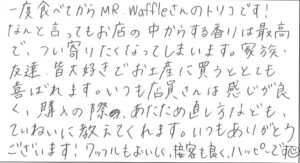 一度食べてからMR.Waffleさんのトリコです!
なんと言ってもお店の中からする香りは最高
で、つい寄りたくなってしまいます。家族、
友達、皆大好きでお土産に買うととても
喜ばれます。いつも店員さんは感じが良
く、購入の際、あたため直し方なども、
ていねいに教えてくれます。いつもありがとう
ございます!ワッフルもおいしく、接客も良く、ハッピーです☺